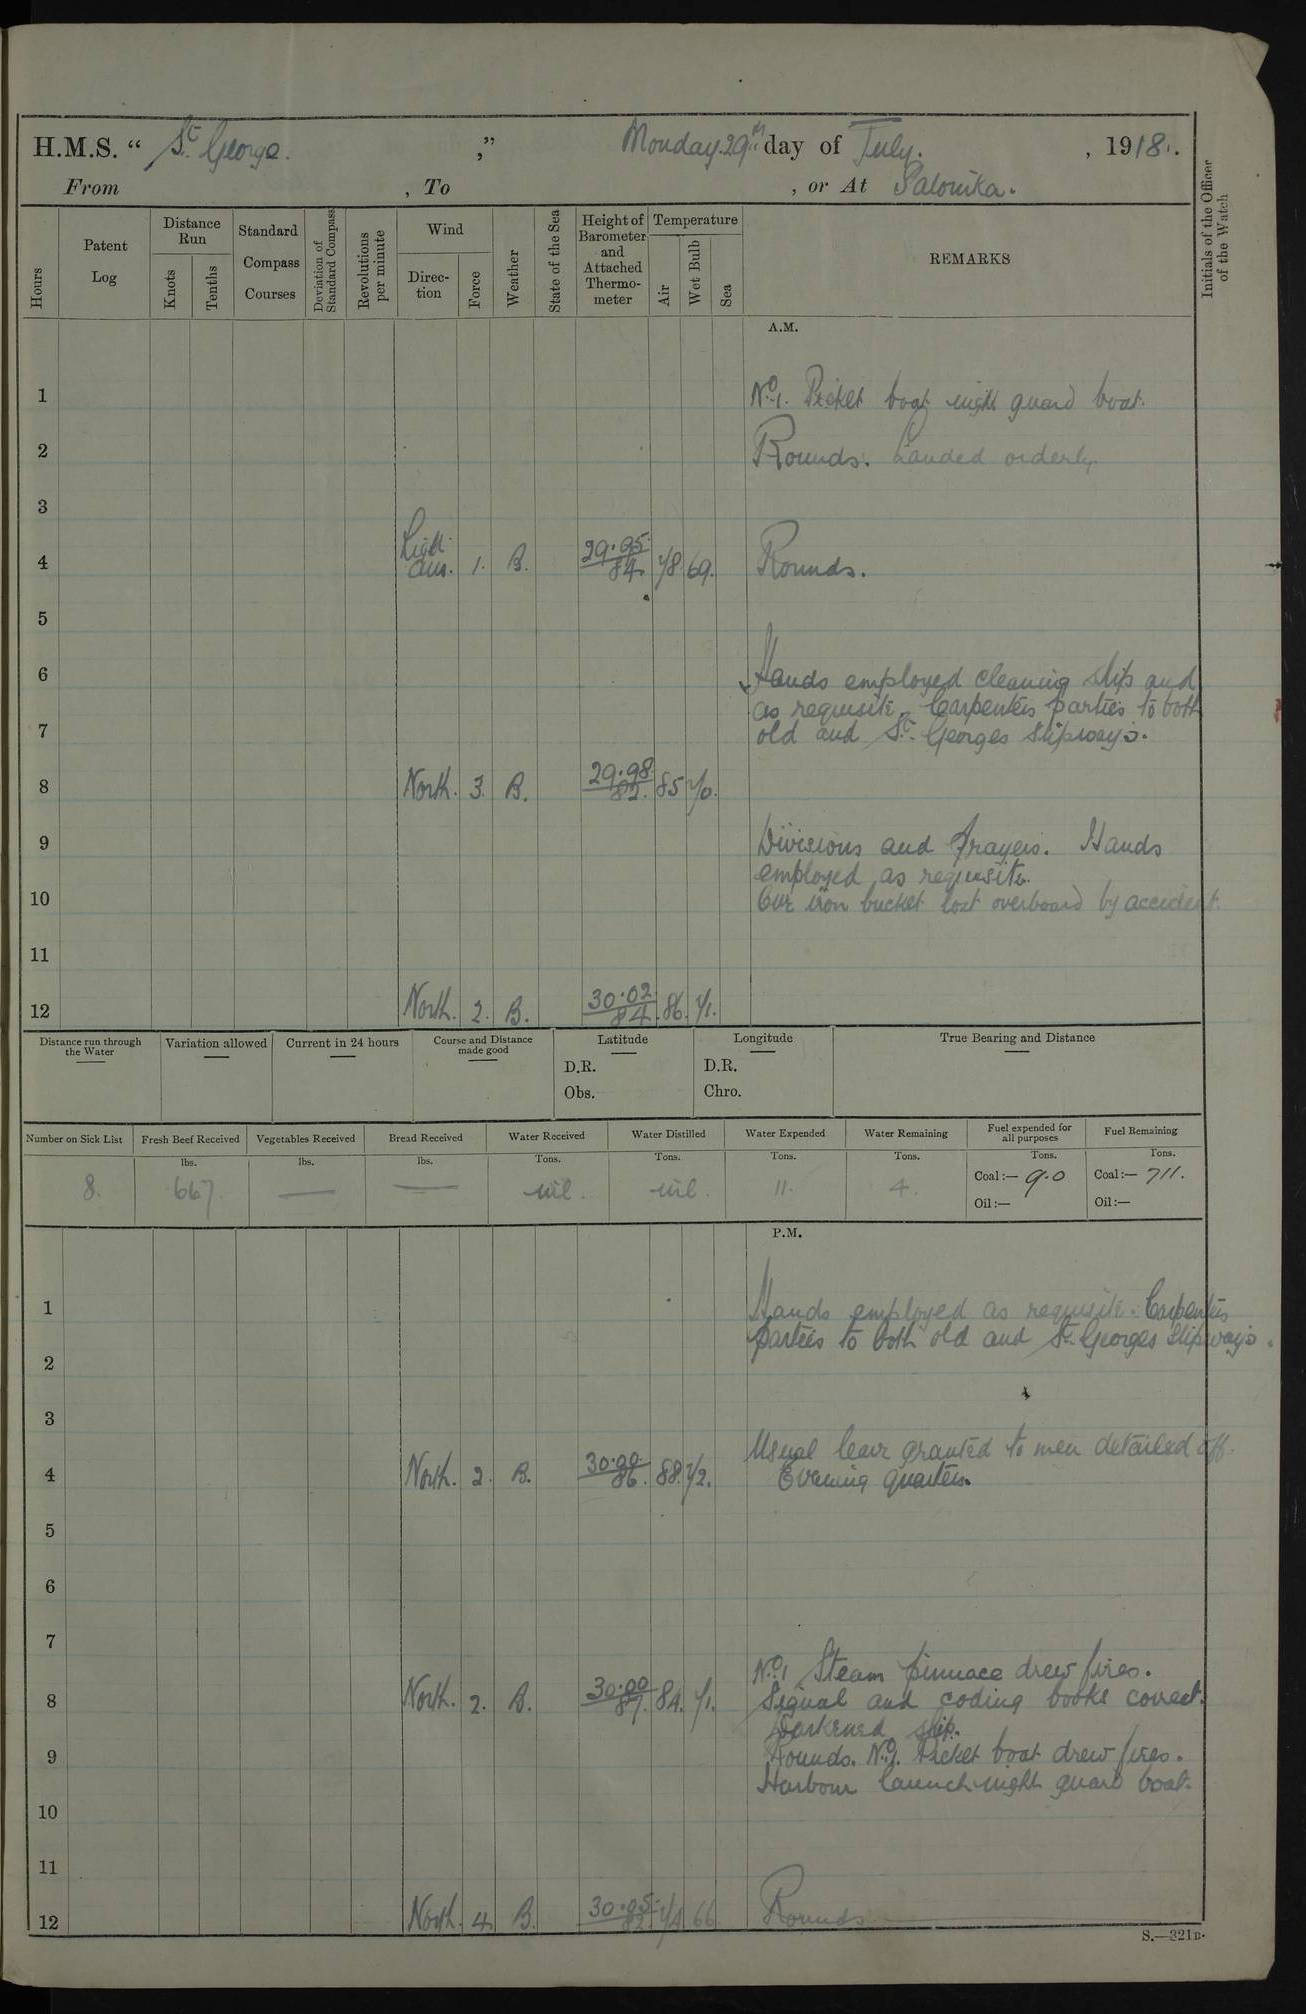 H.M.S. “ St George. ,” Monday 29th day of July. , 1918.
From , To , or At Salonika.
Hours
Patent Log
Distance Run
Knots
Tenths
Standard Compass Courses
Deviation of Standard Compass
Revolutions per minute
Wind
Direc-tion
Force
Weather
State of the Sea
Height of Barometer and Attached Thermo-meter
Temperature
Air
Wet Bulb
Sea
REMARKS
Initials of the Officer of the Watch
A.M.
1 No 1. Picket boat night guard boat.
2 Rounds. Landed orderly
3
4 Light airs. 1. B. 29.95 84. 78 69. Rounds.
5
6 Hands employed cleaning ship and
as requisite. Carpenters parties to both
7 old and St. Georges Slipways.
8 North. 3. B. 29.98 82. 85 70.
9 Divisions and Prayers. Hands
employed as requisite.
10 One iron bucket lost overboard by accident.
11
12 North. 2. B. 30.02 84. 86. 71.
Distance run through the Water
Variation allowed
Current in 24 hours
Course and Distance made good
Latitude
D.R.
Obs.
Longitude
D.R.
Chro.
True Bearing and Distance
Number on Sick List
Fresh Beef Received
Vegetables Received
Bread Received
Water Received
Water Distilled
Water Expended
Water Remaining
Fuel expended for all purposes
Fuel Remaining
lbs. lbs. lbs. Tons. Tons. Tons. Tons. Tons. Tons.
8. 667. — — nil. nil. 11. 4. Coal:— 9.0 Coal:— 711.
Oil:— Oil:—
P.M.
1 Hands employed as requisite. Carpenters
parties to both old and St. Georges Slipways.
2
3
Usual leave granted to men detailed off.
4 North. 2. B. 30.00 86. 88. 72. Evening quarters.
5
6
7
No 1 Steam pinnace drew fires.
8 North. 2. B. 30.00 87. 84. 71. Signal and coding books correct.
Darkened ship.
9 Rounds. No 1. Picket boat drew fires.
Harbour launch night guard boat.
10
11
12 North. 4. B. 30.05 74 66 Rounds
S.—321B.